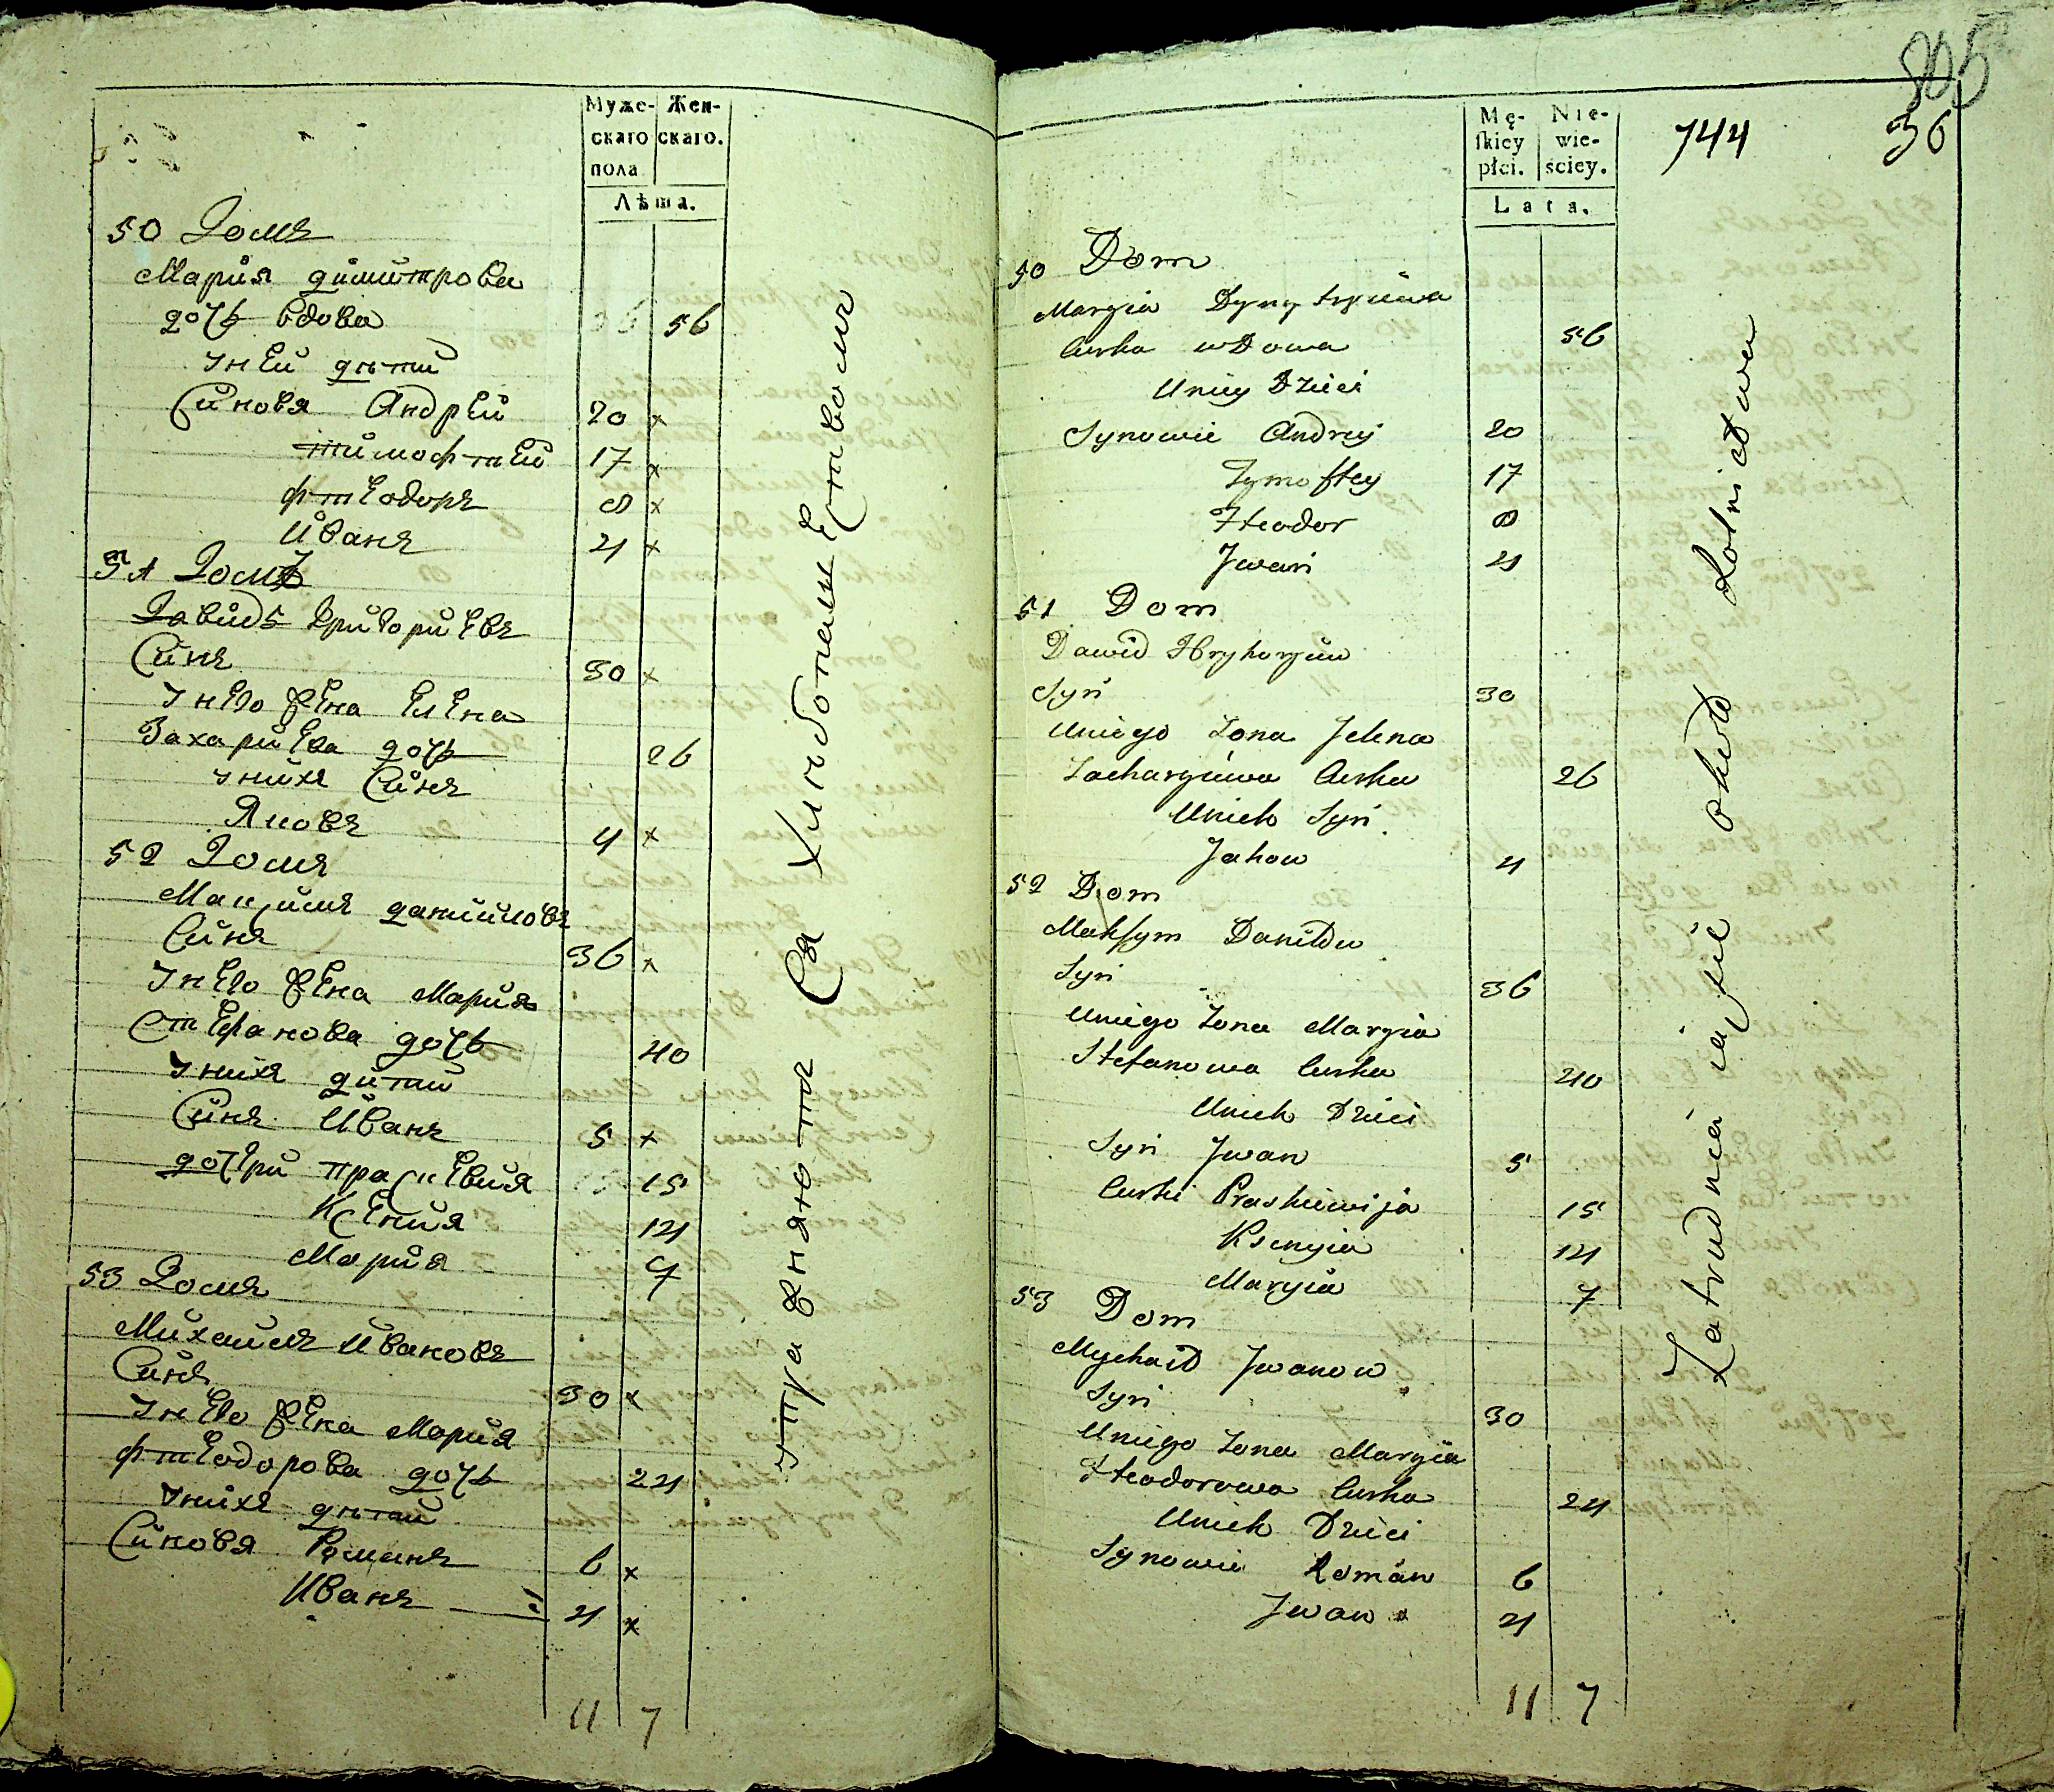 Муже-
скаго
пола
Жен-
скаго.
Лѣта.
50 Домъ
Мария димитрова
дочь вдова 56
унеи дѣти
Синовя Андреи 20 x
тимофтеи 17 x
фтеодоръ 8 x
Иванъ 4 x
51 Домъ
Давидъ Григориевъ
Синъ 30 x
У него жена Елена
Захариева дочь 26
унихъ Синъ
Яковъ 4 x
52 Домъ
Максимъ данииловъ
Синъ 36 x
У него жена Мария
Стефанова дочь 40
унихъ дити
Синъ Иванъ 5 x
дочери праскевия 15
Ксения 14
Мария 7
53 Домъ
Михаилъ Ивановъ
Синъ 30 x
У него жена Мария
фтеодорова дочь 24
унихъ дѣти
Синовя Романъ 6 x
Иванъ 4 x
11 7
упражняются Хлѣбопашествомъ
805
744 36
Mę-
skiey
płci.
Nie-
wie-
ściey.
Lata.
50 Dom
Maryia Dymytryiewa
Curka wDowa 56
Uniey Dzieci
Synowie Andrey 20
Tymoftey 17
Fteodor 8
Jwan 4
51 Dom
Dawid Hryhoryiew
Syn 30
Uniego Zona Jelena
Zacharyiewa Curka 26
Unich Syn
Jakow 4
52 Dom
Maksym Daniłów
Syn 36
Uniego Zona Maryia
Stefanowa Curka 40
Unich Dzieci
Syn Jwan 5
Curki Praskiewija 15
Ksenyia 14
Maryia 7
53 Dom
Mychaił Jwanow
Syn 30
Uniego Zona Maryia
Fteodorowa Curka 24
Unich Dzieci
Synowie Roman 6
Jwan 4
11 7
Zatrudniaią się około Rolnictwa